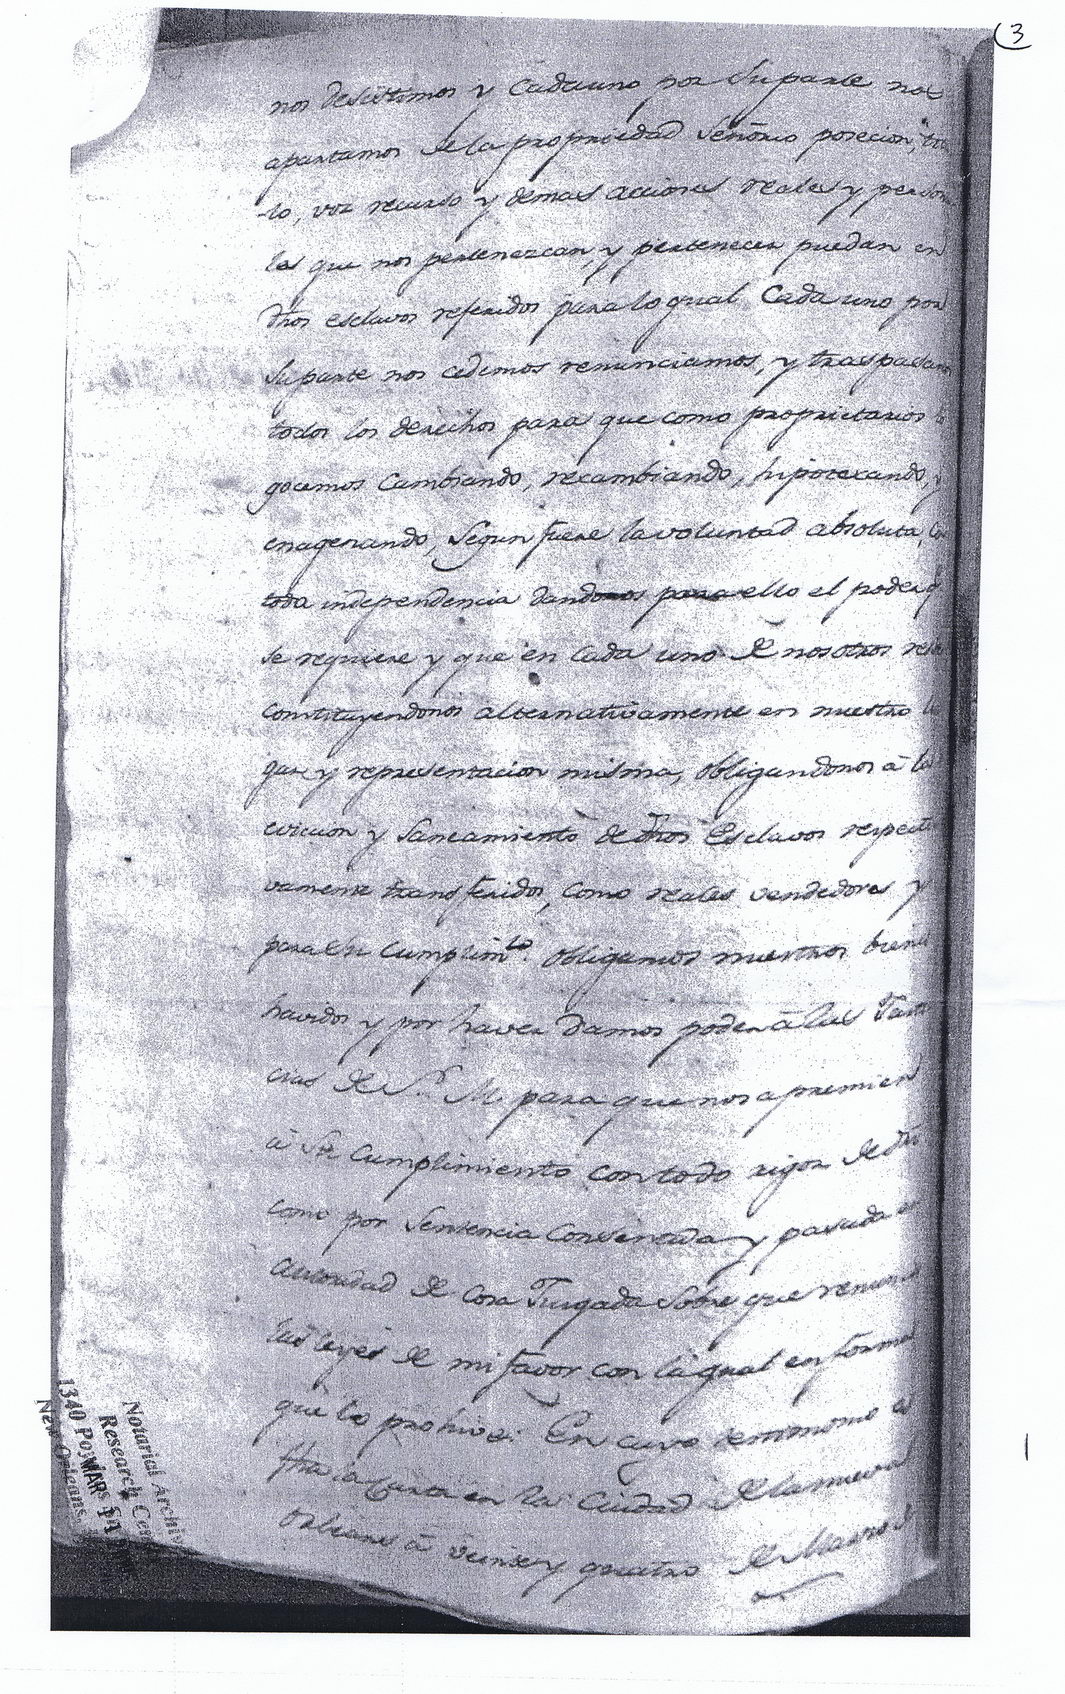 3
nos desistimos y Cada uno por Su parte nos
apartamos de la propriedad Señorio posecion, titu
lo, voz recurso y demas acciones reales y persona
les que nos pertenezcan, y pertenecer puedan en
dhos esclavos referidos para lo qual Cada uno por
Su parte nos cedemos renunciamos, y traspasamos
todos los derechos para que como proprietarios lo
gocemos Cambiando, recambiando, hipotecando, y
enagenando, Segun fuere la voluntad absoluta, con
toda independencia dandonos para ello el poder q
se requiere y que en Cada uno de nosotros reside
constituyendonos alternativamente en nuestro lu
gar y representacion misma, obligandonos à la
eviccion y Saneamiento de dhos Esclavos respecti
vamente transferidos, como reales vendedores y
para su Cumplimto. obligamos nuestros bienes
havidos y por haver damos poder à las Justi
cias de S. M. para que nos apremien
à su Cumplimiento con todo rigor de dro
como por Sentencia Consentida y pasada en
autoridad de Cosa Jusgada Sobre que renuncio
las leyes de mi favor con la qual en forma
que lo prohive: En cuyo testimonio es
fha la Carta en la Ciudad de la nueva
Orleans à veinte y quatro de Marzo de
Notarial Archiv
Research Cen
1340 Poy
New Orleans,
MAR